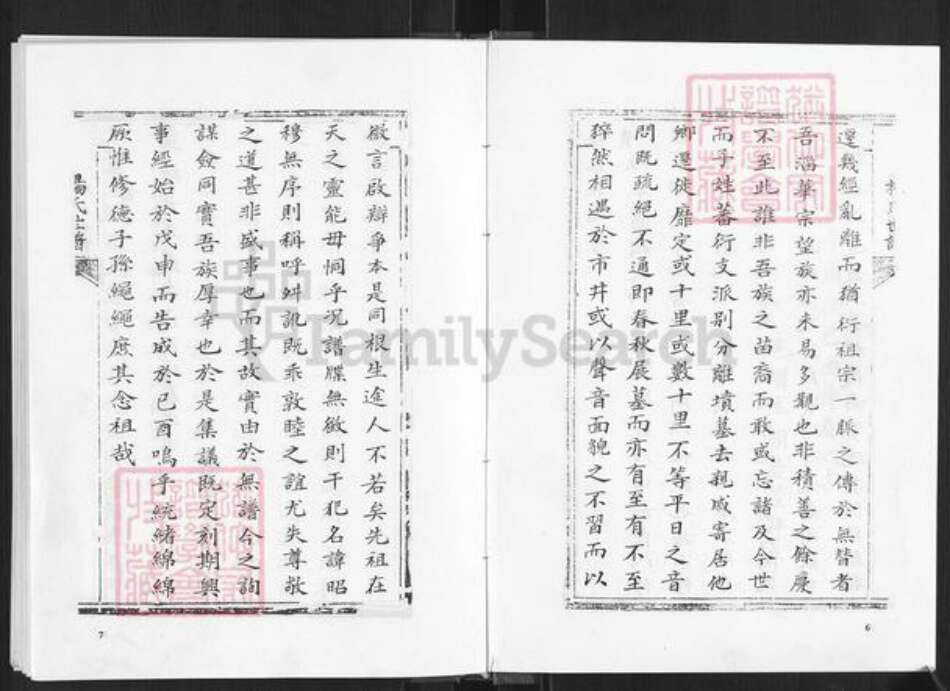 還幾經亂離而猶衍祖宗一脈之傳於無替者
吾淄華宗望族亦未易多覯也非積善之餘慶
不至此誰非吾族之苗裔而敢或忘諸及今世
而子姓蕃衍支派別分離墳墓去親戚寄居他
鄉遷徙靡定或十里或數十里不等平日之音
問既疏絕不通即春秋展墓而亦有至有不至
猝然相遇於市井或以聲音面貌之不習而以
微言啟辯爭本是同根生途人不若矣先祖在
天之靈能毋恫乎況譜牒無徵則干犯名諱昭
穆無序則稱呼舛訛既乖敦睦之誼尤失尊敬
之道甚非盛事也而其故實由於無譜今之詢
謀僉同實吾族厚幸也於是集議既定刻期興
事經始於戊申而告成於己酉嗚乎統緒綿綿
厥惟修德子孫繩繩庶其念祖哉
氏世譜
FamilySearch
7
6